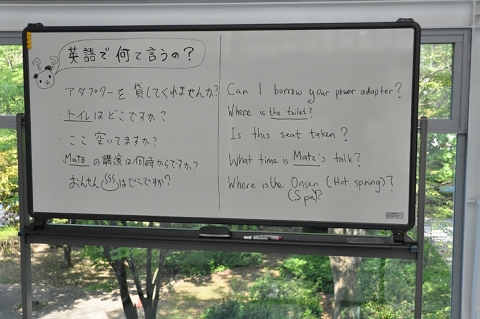 英語で何て言うの？
? ?
・アダプターを貸してくれませんか？
・トイレはどこですか？
・ここ空いてますか？
・Matzの講演は何時からですか？
・おんせんはどこですか？
Can I borrow your power adapter?
Where is the toilet?
Is this seat taken?
What time is Matz's talk?
Where is the Onsen (Hot spring)?
(Spa)?